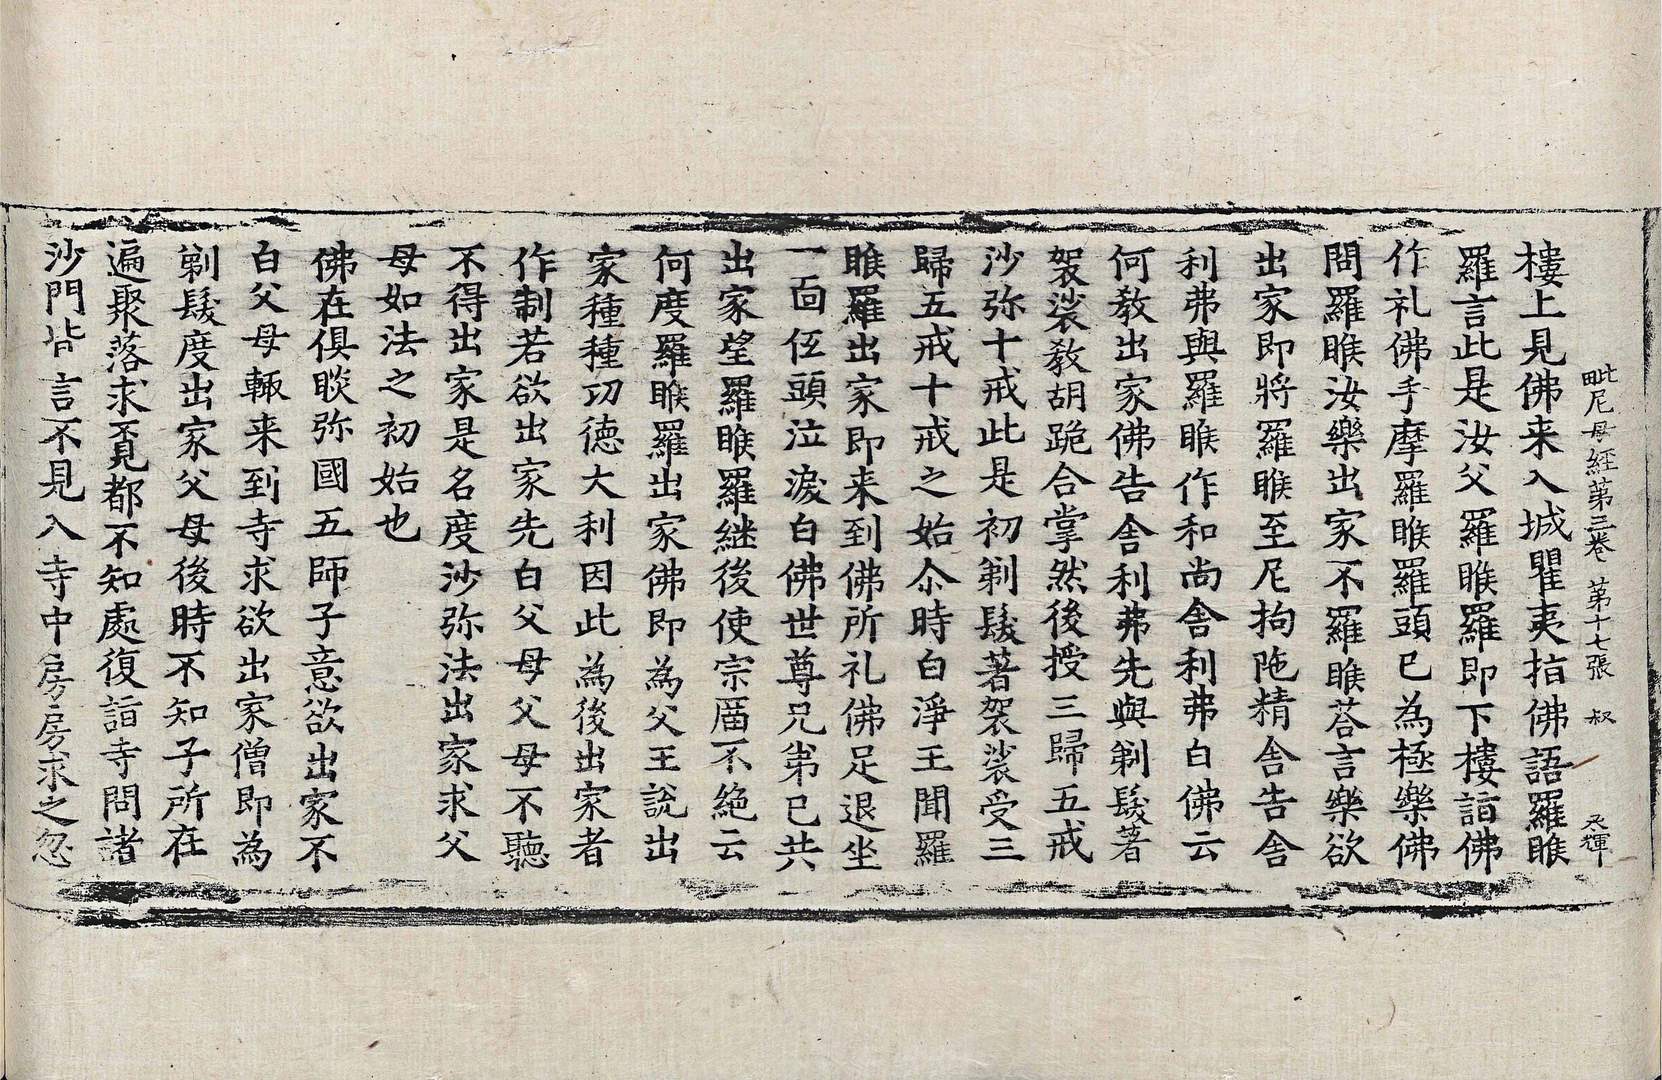 毗尼母經第三卷　第十七張　叔　永輝
樓上見佛来入城瞿夷指佛語羅睺
羅言此是汝父羅睺羅即下樓詣佛
作礼佛手摩羅睺羅頭已為極樂佛
問羅睺汝樂出家不羅睺荅言樂欲
出家即將羅睺至尼拘陁精舎告舎
利弗與羅睺作和尚舎利弗白佛云
何教出家佛告舎利弗先與剃髮著
袈裟教胡跪合掌然後授三歸五戒
沙弥十戒此是初剃髮著袈裟受三
歸五戒十戒之始尒時白淨王聞羅
睺羅出家即来到佛所礼佛足退坐
一面伍頭泣淚白佛世尊兄弟已共
出家望羅睺羅継後使宗𠪨不絶云
何度羅睺羅出家佛即為父王說出
家種種功德大利因此為後出家者
作制若欲出家先白父母父母不聽
不得出家是名度沙弥法出家求父
母如法之初始也
佛在俱睒弥國五師子意欲出家不
白父母輙来到寺求欲出家僧即為
剃髮度出家父母後時不知子所在
遍聚落求覓都不知處復詣寺問諸
沙門皆言不見入寺中房房求之忽